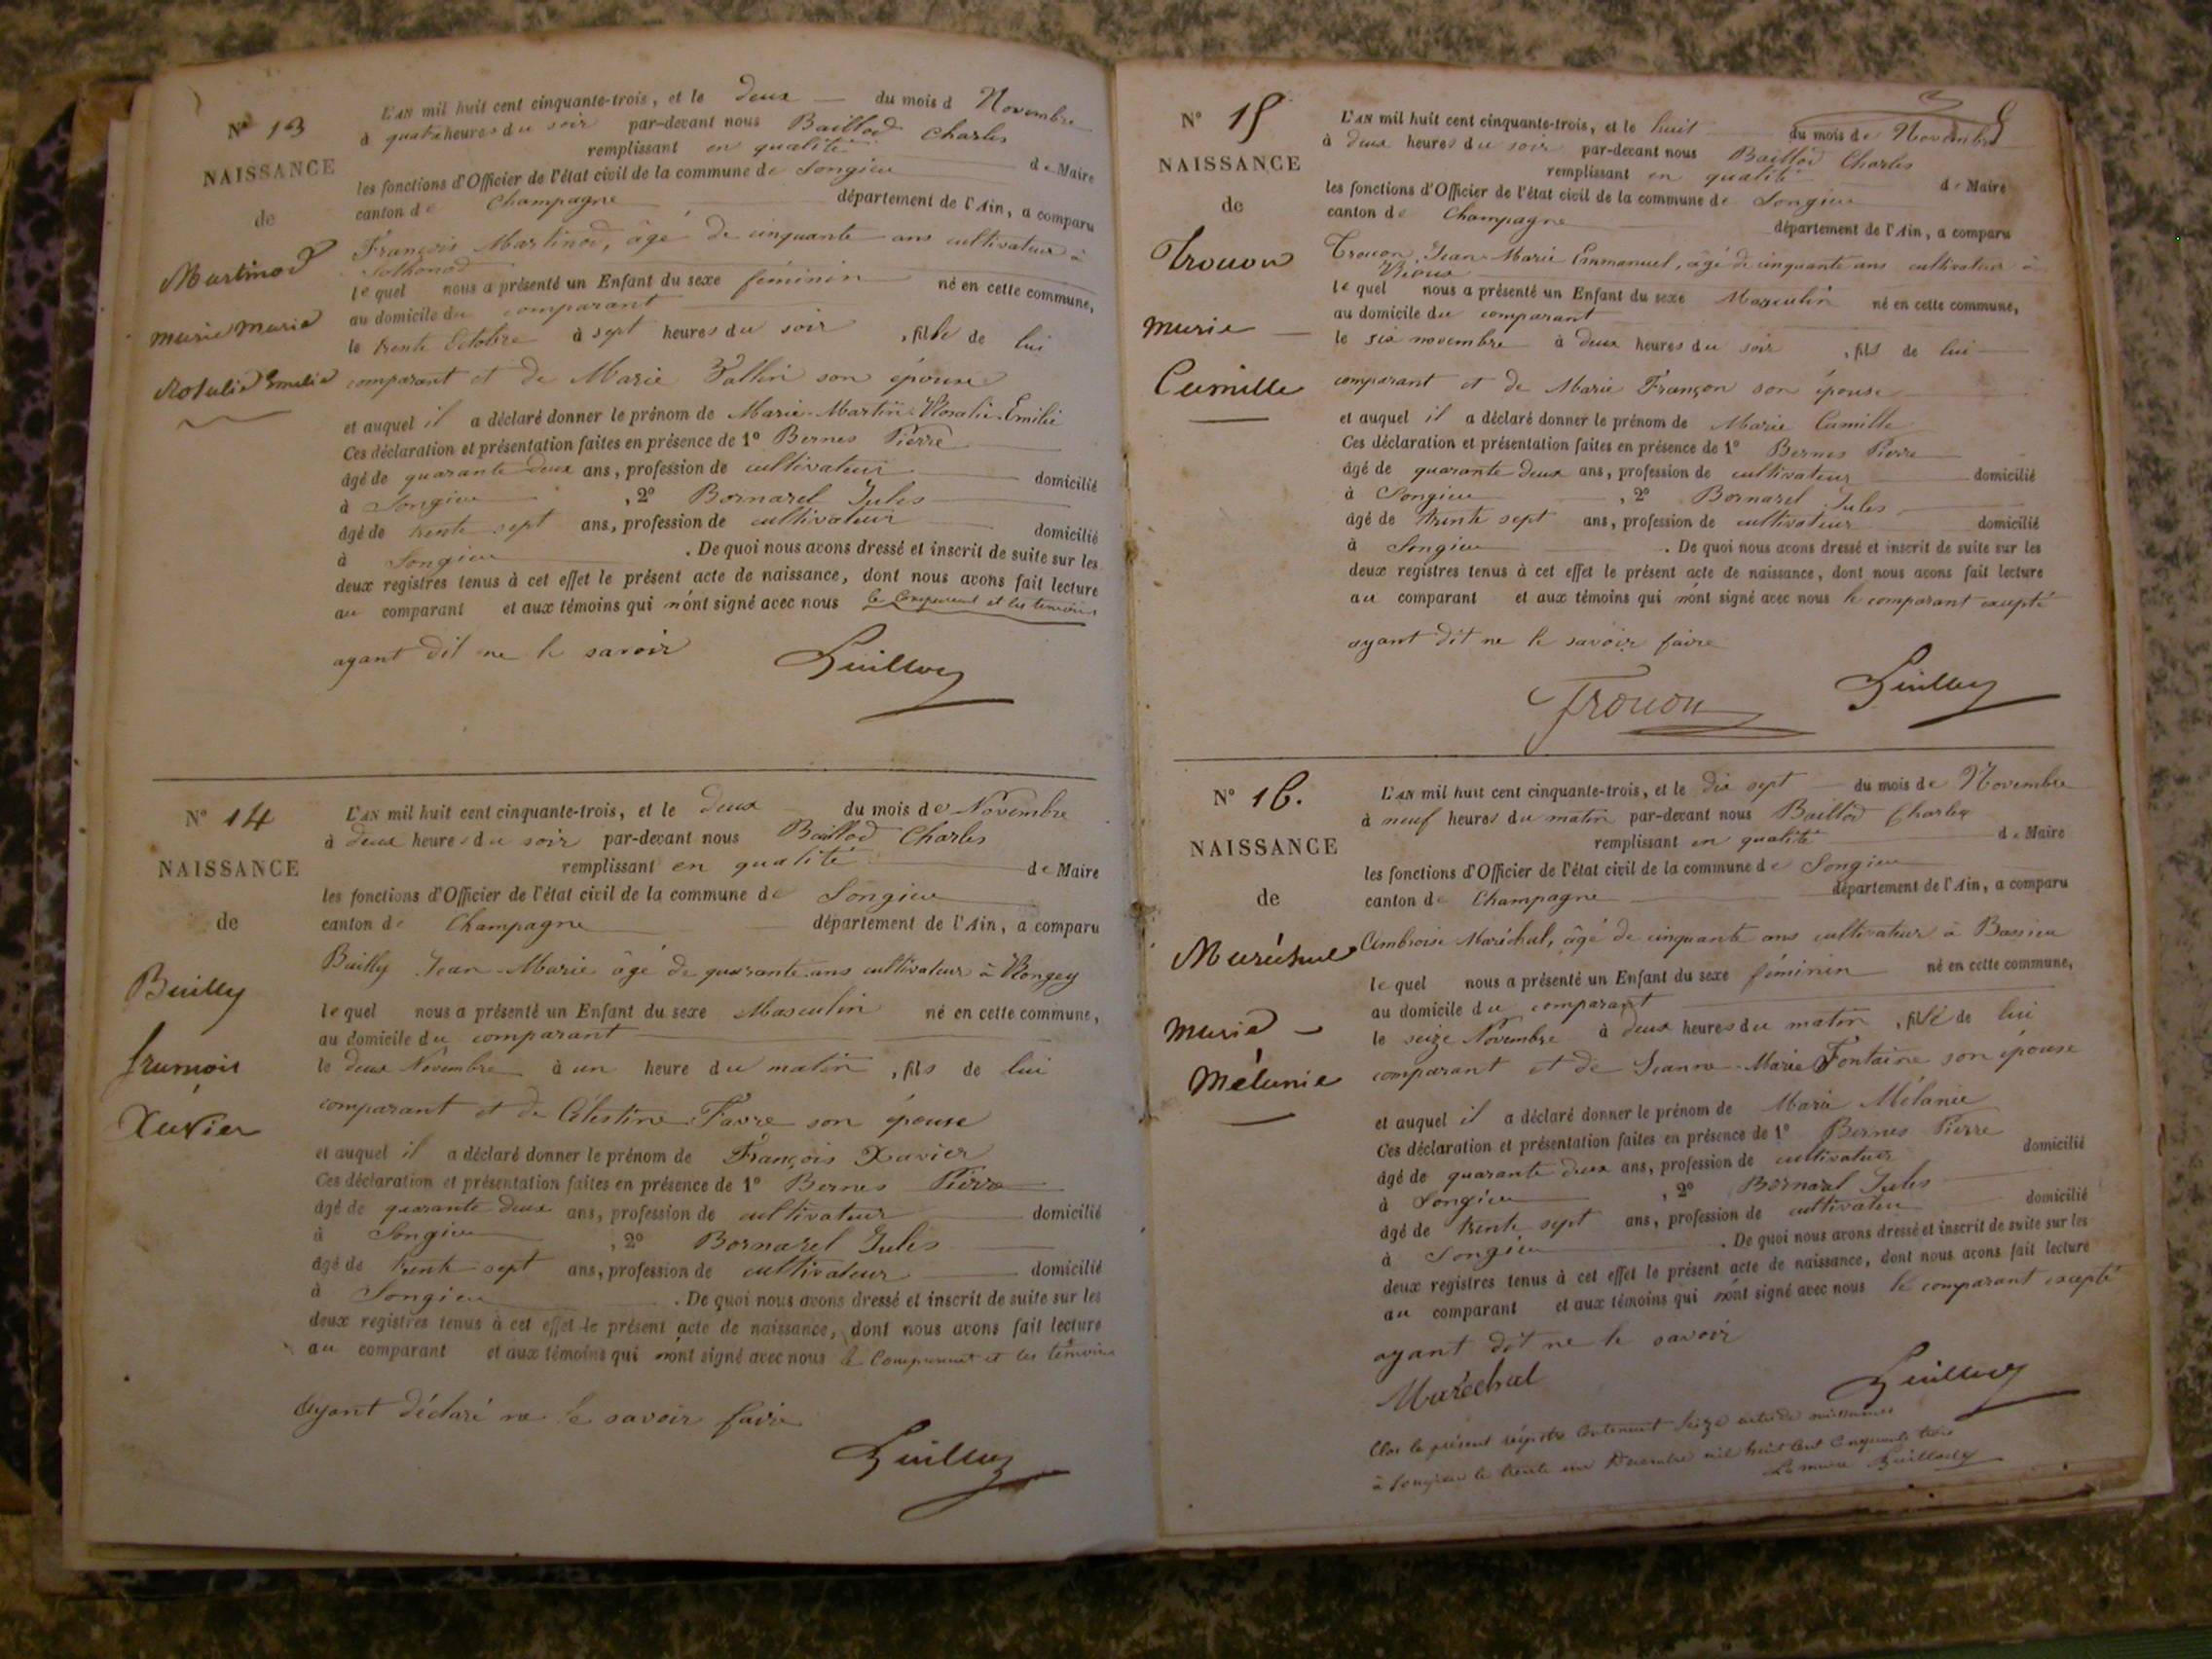 N° 13
NAISSANCE
de
Martinod
Marie Marie
Rosalie Emélie
L'AN mil huit cent cinquante-trois, et le deux du mois d Novembre
à quatre heures du soir par-devant nous Baillod Charles
remplissant en qualité de Maire
les fonctions d'Officier de l'état civil de la commune de Songieu
canton de Champagne département de l'Ain, a comparu
François Martinod, âgé de cinquante ans cultivateur à
Sothonod
lequel nous a présenté un Enfant du sexe féminin né en cette commune,
au domicile du comparant
le trente Octobre à sept heures du soir, fille de lui
comparant et de Marie son épouse
et auquel il a déclaré donner le prénom de Marie-Martine-Rosalie-Emilie
Ces déclaration et présentation faites en présence de 1° Bernes Pierre
âgé de quarante deux ans, profession de cultivateur domicilié
à Songieu, 2° Bornarel Jules
âgé de trente sept ans, profession de cultivateur domicilié
à Songieu. De quoi nous avons dressé et inscrit de suite sur les
deux registres tenus à cet effet le présent acte de naissance, dont nous avons fait lecture
au comparant et aux témoins qui n'ont signé avec nous le Comparant et les témoins
ayant dit ne le savoir
N° 14
NAISSANCE
de
Bailly
François
Xavier
L'AN mil huit cent cinquante-trois, et le deux du mois de Novembre
à deux heures du soir par-devant nous Baillod Charles
remplissant en qualité de Maire
les fonctions d'Officier de l'état civil de la commune de Songieu
canton de Champagne département de l'Ain, a comparu
Bailly Jean-Marie âgé de quarante ans cultivateur à Rongey
lequel nous a présenté un Enfant du sexe Masculin né en cette commune,
au domicile du comparant
le deux Novembre à un heure du matin, fils de lui
comparant et de Célestine Favre son épouse
et auquel il a déclaré donner le prénom de François Xavier
Ces déclaration et présentation faites en présence de 1° Bernes Pierre
âgé de quarante deux ans, profession de cultivateur domicilié
à Songieu, 2° Bornarel Jules
âgé de trente sept ans, profession de cultivateur domicilié
à Songieu. De quoi nous avons dressé et inscrit de suite sur les
deux registres tenus à cet effet le présent acte de naissance, dont nous avons fait lecture
au comparant et aux témoins qui n'ont signé avec nous le Comparant et les témoins
ayant déclaré ne le savoir faire
N° 15
NAISSANCE
de
Trouon
Marie
Camille
L'AN mil huit cent cinquante-trois, et le huit du mois de Novembre
à deux heures du soir par-devant nous Baillod Charles
remplissant en qualité de Maire
les fonctions d'Officier de l'état civil de la commune de Songieu
canton de Champagne département de l'Ain, a comparu
Trouon, Jean-Marie Emmanuel, âgé de cinquante ans cultivateur à
lequel nous a présenté un Enfant du sexe Masculin né en cette commune,
au domicile du comparant
le six novembre à deux heures du soir, fils de lui
comparant et de Marie Françon son épouse
et auquel il a déclaré donner le prénom de Marie Camille
Ces déclaration et présentation faites en présence de 1° Bernes Pierre
âgé de quarante deux ans, profession de cultivateur domicilié
à Songieu, 2° Bornarel Jules
âgé de trente sept ans, profession de cultivateur domicilié
à Songieu. De quoi nous avons dressé et inscrit de suite sur les
deux registres tenus à cet effet le présent acte de naissance, dont nous avons fait lecture
au comparant et aux témoins qui n'ont signé avec nous le comparant excepté
ayant dit ne le savoir faire
Trouon
N° 16.
NAISSANCE
de
Maréchal
Marie
Mélanie
L'AN mil huit cent cinquante-trois, et le dix sept du mois de Novembre
à neuf heures du matin par-devant nous Baillod Charles
remplissant en qualité de Maire
les fonctions d'Officier de l'état civil de la commune de Songieu
canton de Champagne département de l'Ain, a comparu
Ambroise Maréchal, âgé de cinquante ans cultivateur à Bassieu
lequel nous a présenté un Enfant du sexe féminin né en cette commune,
au domicile du comparant
le seize Novembre à deux heures du matin, fille de lui
comparant et de Jeanne-Marie Fontaine son épouse
et auquel il a déclaré donner le prénom de Marie Mélanie
Ces déclaration et présentation faites en présence de 1° Bernes Pierre
âgé de quarante deux ans, profession de cultivateur domicilié
à Songieu, 2° Bornarel Jules
âgé de trente sept ans, profession de cultivateur domicilié
à Songieu. De quoi nous avons dressé et inscrit de suite sur les
deux registres tenus à cet effet le présent acte de naissance, dont nous avons fait lecture
au comparant et aux témoins qui n'ont signé avec nous le comparant excepté
ayant dit ne le savoir
Maréchal
Clos le présent registre Contenant Seize actes de naissances
à Songieu le trente un Décembre mil huit Cent Cinquante trois
Le maire